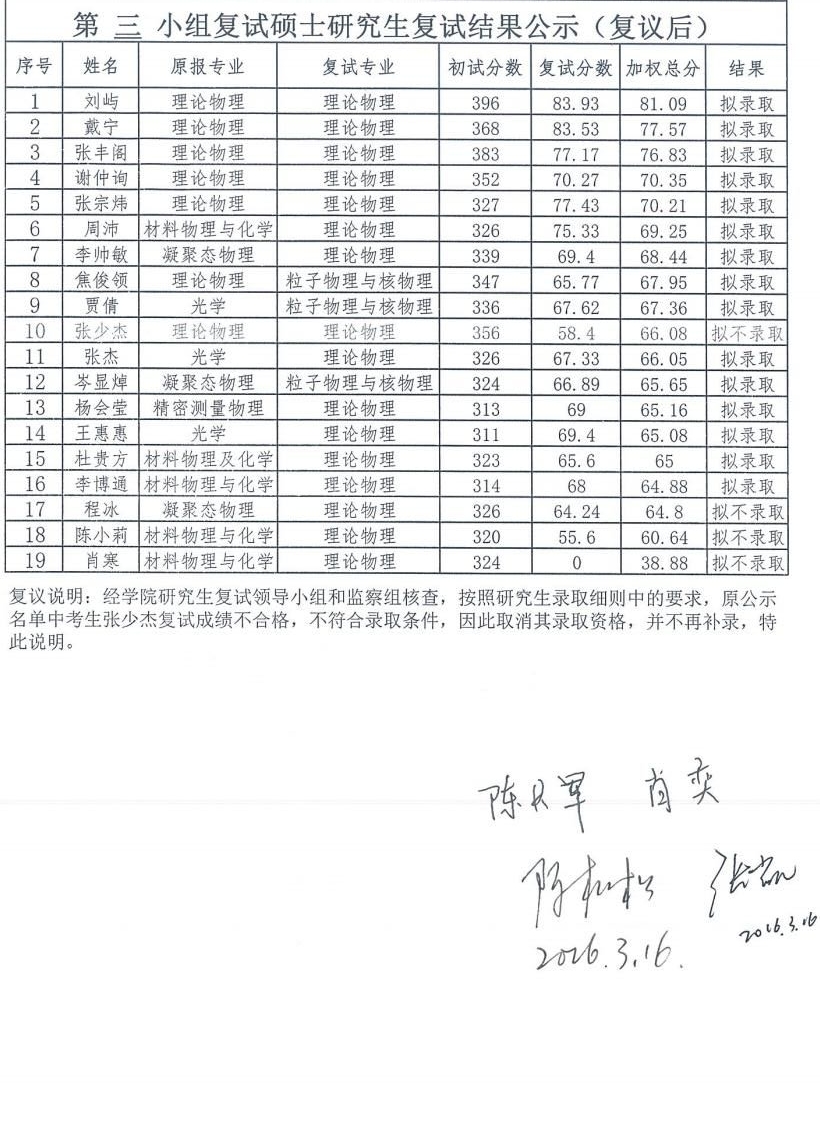 第 三 小组复试硕士研究生复试结果公示（复议后）
序号 姓名 原报专业 复试专业 初试分数 复试分数 加权总分 结果
1 刘屿 理论物理 理论物理 396 83.93 81.09 拟录取
2 戴宁 理论物理 理论物理 368 83.53 77.57 拟录取
3 张丰阁 理论物理 理论物理 383 77.17 76.83 拟录取
4 谢仲询 理论物理 理论物理 352 70.27 70.35 拟录取
5 张宗炜 理论物理 理论物理 327 77.43 70.21 拟录取
6 周沛 材料物理与化学 理论物理 326 75.33 69.25 拟录取
7 李帅敏 凝聚态物理 理论物理 339 69.4 68.44 拟录取
8 焦俊领 理论物理 粒子物理与核物理 347 65.77 67.95 拟录取
9 贾倩 光学 粒子物理与核物理 336 67.62 67.36 拟录取
10 张少杰 理论物理 理论物理 356 58.4 66.08 拟不录取
11 张杰 光学 理论物理 326 67.33 66.05 拟录取
12 岑显焯 凝聚态物理 粒子物理与核物理 324 66.89 65.65 拟录取
13 杨会莹 精密测量物理 理论物理 313 69 65.16 拟录取
14 王惠惠 光学 理论物理 311 69.4 65.08 拟录取
15 杜贵方 材料物理及化学 理论物理 323 65.6 65 拟录取
16 李博通 材料物理与化学 理论物理 314 68 64.88 拟录取
17 程冰 凝聚态物理 理论物理 326 64.24 64.8 拟不录取
18 陈小莉 材料物理与化学 理论物理 320 55.6 60.64 拟不录取
19 肖寒 材料物理与化学 理论物理 324 0 38.88 拟不录取
复议说明：经学院研究生复试领导小组和监察组核查，按照研究生录取细则中的要求，原公示
名单中考生张少杰复试成绩不合格，不符合录取条件，因此取消其录取资格，并不再补录，特
此说明。
肖奕
2016.3.16
2016.3.16.